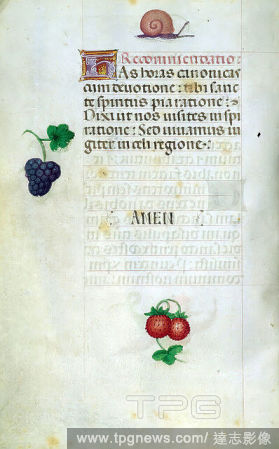 Recommendatio:
Has horas canonicas
cum devotione: tibi sanc
te spiritus pia ratione:
Dixi ut nos visites inspi
ratione: Sed vivamus iu
giter in celi regione:
AMEN
TPG
www.tpgnews.com/ 達志影像